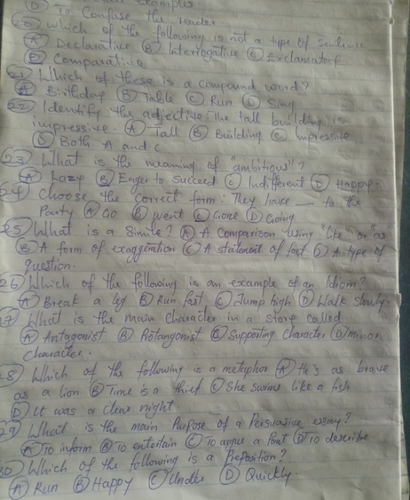 D To Confuse the reader
20 Which of the following is not a type of Sentence
A Declarative B Interrogative C Exclamatory
D Comparative
21 Which of these is a compound word?
A Birthday B Table C Run D Sing
22 Identify the adjective: The tall building is
impressive. A Tall B Building C Impressive
D Both A and C
23 What is the meaning of "ambitious"?
A Lazy B Eager to Succeed C Indifferent D Happy.
24 Choose the correct form: They have — to the
Party A Go B Went C Gone D Going
25 What is a Simile? A A Comparison using "like" or "as"
B A form of exaggeration C A statement of fact D A type of
question.
26 Which of the following is an example of an Idiom?
A Break a leg B Run fast C Jump high D Walk slowly.
27 What is the main character in a story called
A Antagonist B Protangonist C Supporting Character D minor
Character.
28 Which of the following is a metaphor A He's as brave
as a lion B Time is a thief C She swims like a fish
D It was a clear night
29 What is the main Purpose of a Persuasive essay?
A To inform B To entertain C To argue a Point D To describe
30 Which of the following is a Preposition?
A Run B Happy C Under D Quickly